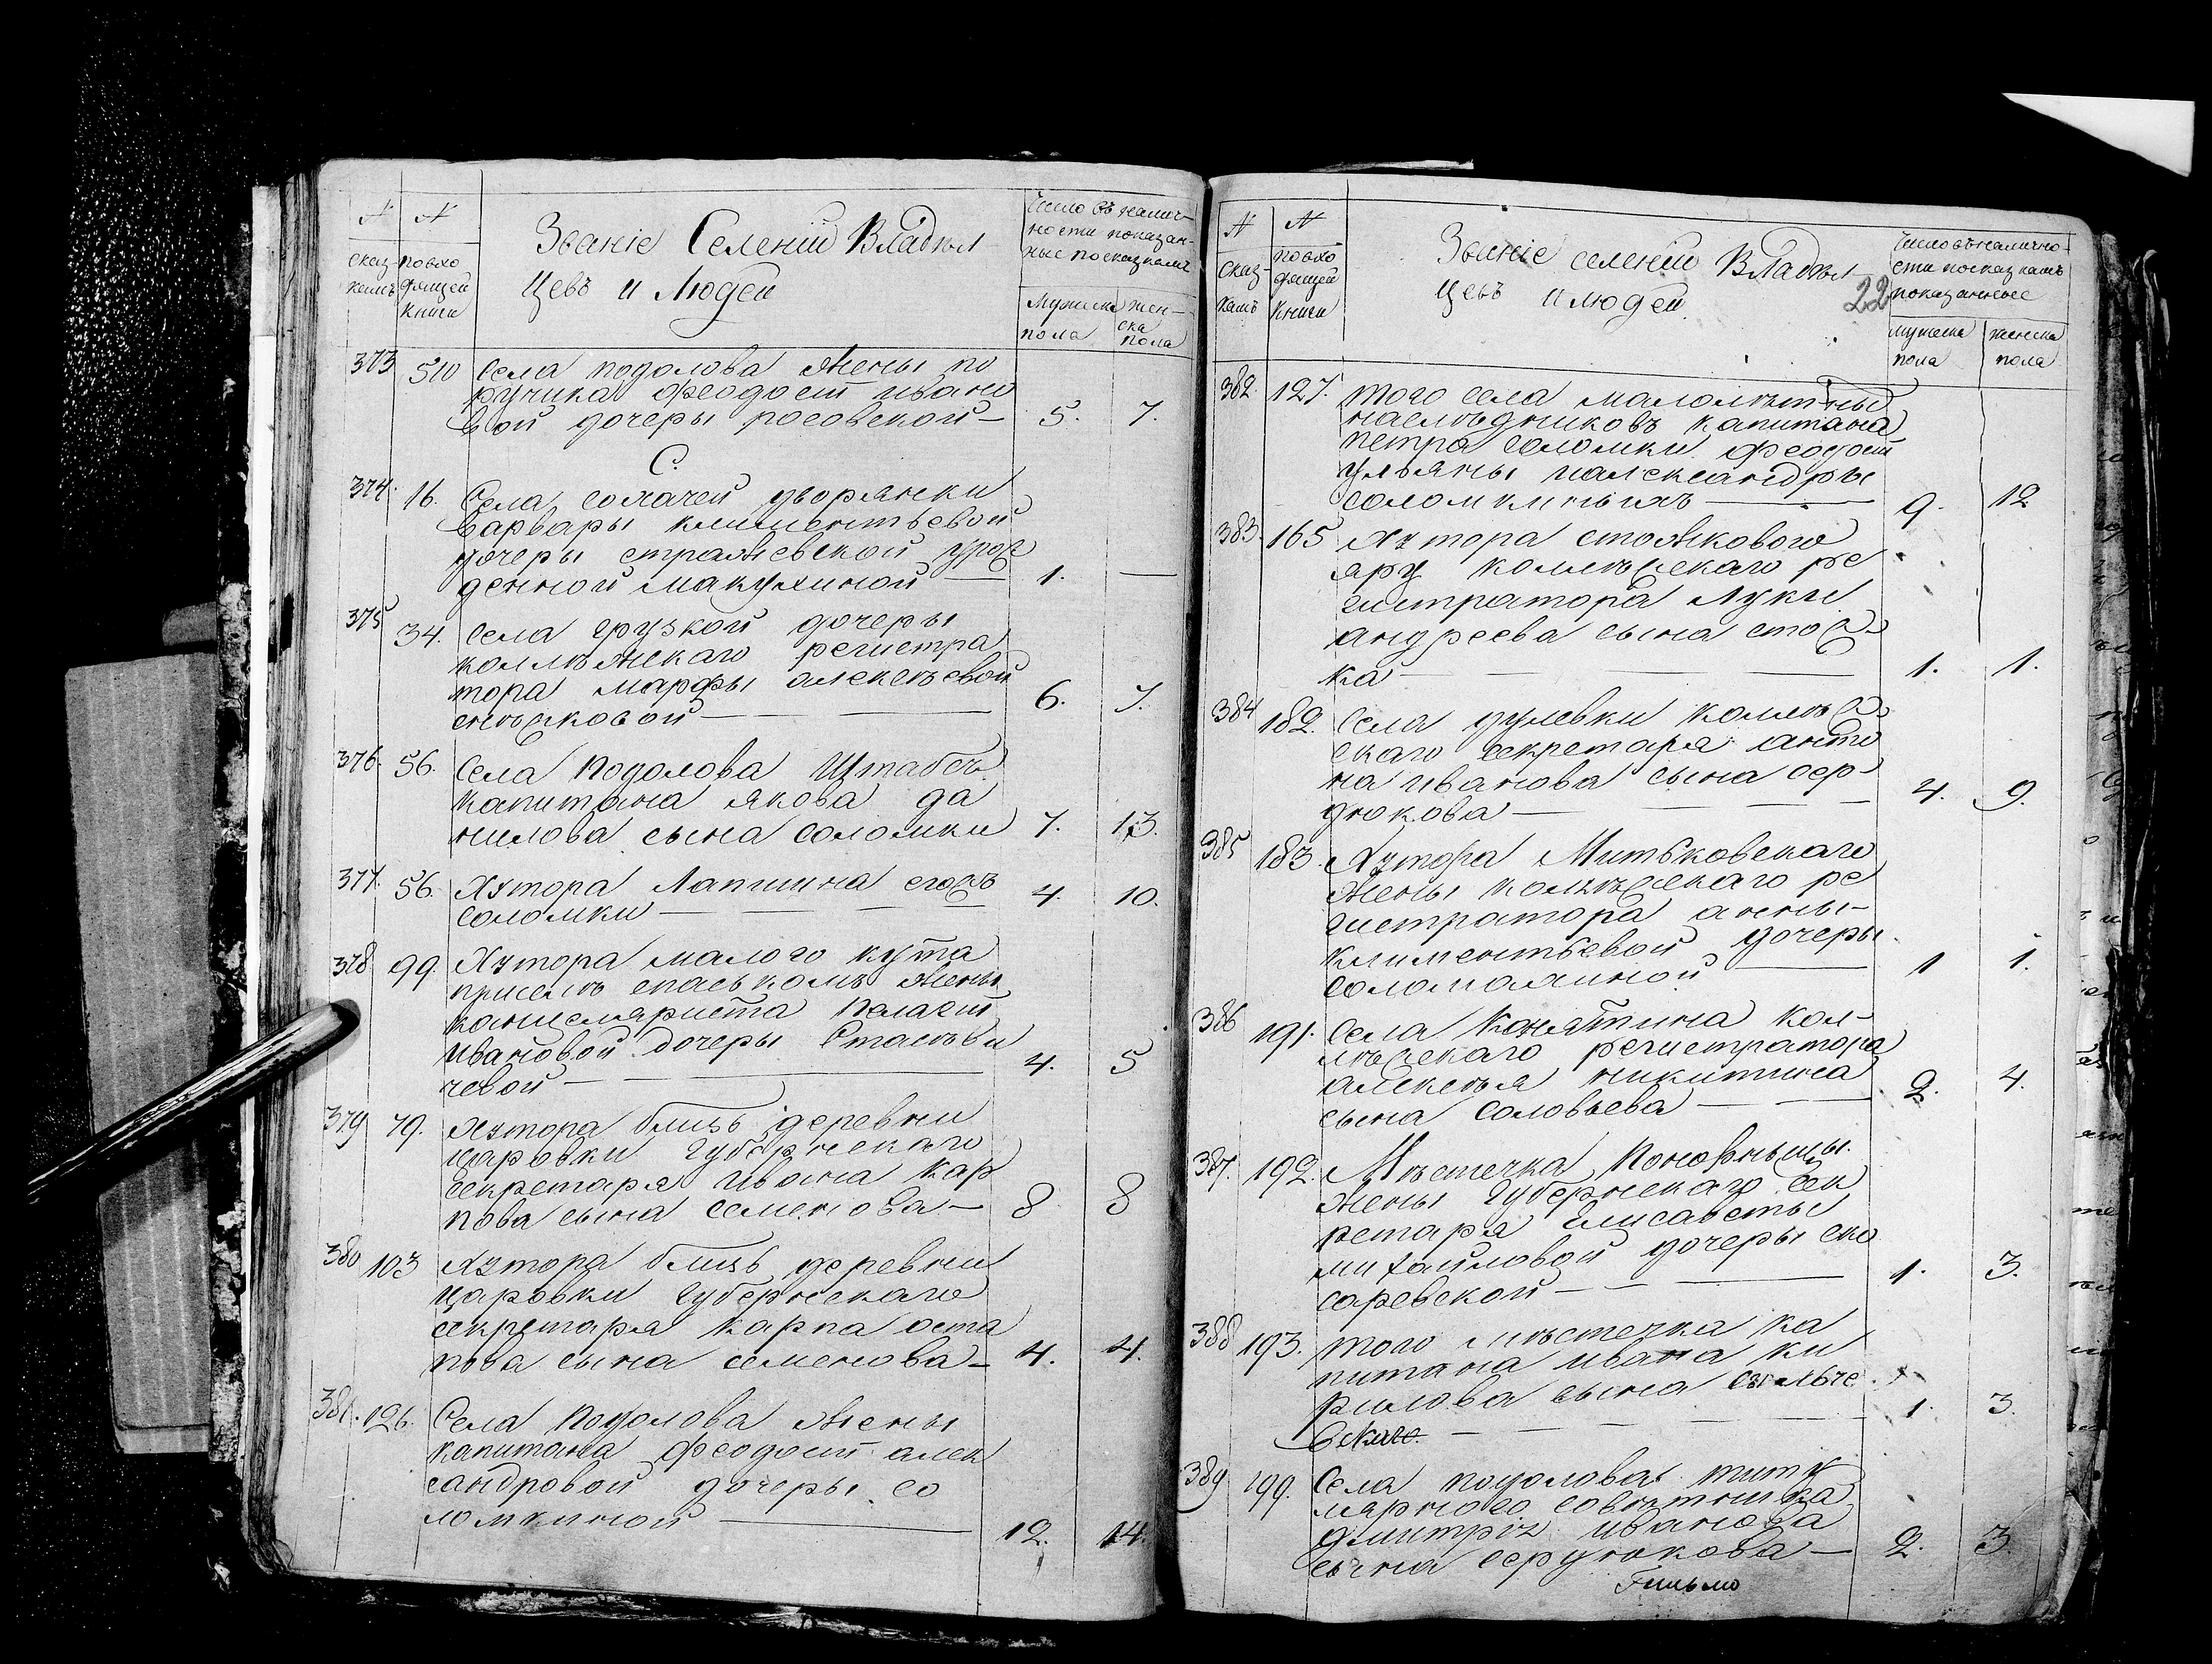 № № Званіе Селеній Владѣл
цевъ и Людей
сказ-
камъ
повхо
дящей
книги
Число въ налич-
ности показан-
ные посказкамъ
Мужеска
пола
жен-
ска
пола
373 510 Села подолова жены по
ручика Феодосіи ивано
вой дочеры росовской — 5. 7.
С.
374. 16. Села сохачей дворянки
варвары климентьевой
дочеры стражевской урож
денной макухиной — 1. —
375 34. Села грузкой дочеры
коллѣжскаго регистра
тора марфы алексѣевой
снѣжковой — 6. 7.
376. 56. Села подолова Штабсъ
капитана якова да
нилова сына соломки 7. 13.
377. 56. Хутора Лапшина егожъ
соломки — 4. 10.
378 99. Хутора малого кута
приселѣ спаськомъ жены
канцеляриста пелагіи
ивановой дочеры Стасѣви
чевой — 4. 5
379 79. Хутора близь деревни
царовки Губернскаго
секретаря ивана кар
пова сына семенова — 8 8
380 103 Хутора близь деревни
царовки Губернскаго
секретаря карпа оста
пова сына семенова — 4. 4.
381. 126. Села подолова жены
капитана феодосіи алек
сандровой дочеры со
ломкиной — 12. 14.
№ № Званіе селеній Владѣл
цевъ и людей.
22
сказ-
камъ
повхо
дящей
книги
Число въ налично-
сти посказкамъ
показанные
мужеска
пола
женска
пола
382 127. того села малолѣтныхъ
наслѣдниковъ капитана
петра соломки феодосіи
ульяны иалександры
соломкиныхъ — 9. 12
383. 165 Хутора столжкового
яру коллѣжскаго ре
гистратора Луки
андреева сына стож
ка — 1. 1.
384 182. Села дулевки коллѣж
скаго секретаря анто
на иванова сына сер-
дюкова — 4. 9.
385 183. Хутора Митьковскаго
жены коллѣжскаго ре
гистратора анны-
климентьевой дочеры
соломахиной — 1 1.
386 191. Села Конятина кол-
лѣжскаго регистратора
алексѣя никитина
сына Соловьева — 2. 4.
387. 192. Мѣстечка Понорницы.
жены Губернскаго сек
ретаря Елисаветы
михайловой дочеры ско
саревской — 1. 3.
388 193. того мѣстечка ка
питана ивана ки
рилова сына
вскаго. — 1. 3.
389 199. Села подолова титу
лярного совѣтника
дмитрія иванова
сына сердюкова — 2. 3.